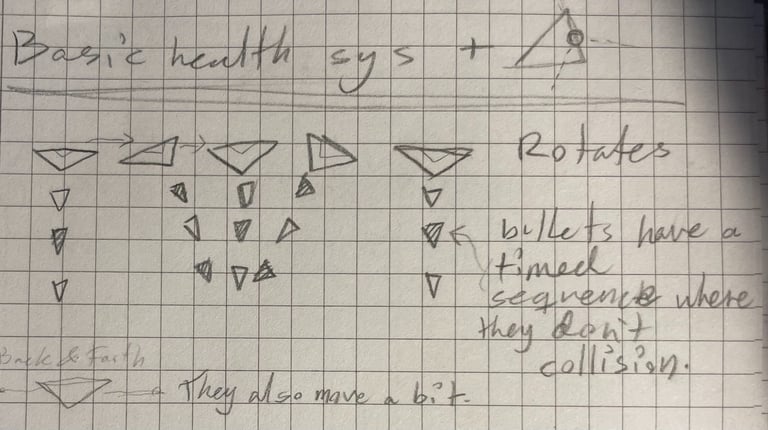 Basic health sys +
Rotates
bullets have a
timed
sequence where
they don't
collision.
Back & Forth
They also move a bit.